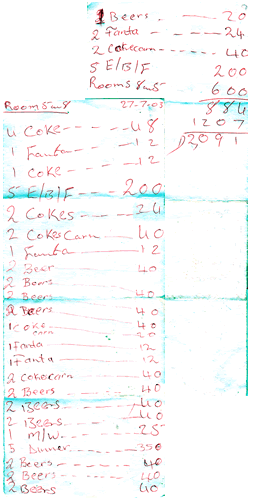 1 Beers -- 20
2 Fanta --- 24
2 Cokecarn -- 40
5 E/B/F 200
Rooms 8 on 5 600
884
1207
2,091
Rooms 5 on 8 27-7-03
4 Coke --- 48
1 Fanta --- 12
1 Coke --- 12
5 E/B/F --- 200
2 Cokes --- 24
2 Cokes Carn -- 40
1 Fanta --- 12
2 Beer 40
2 Beers
2 Beers 40
2 Beers 40
1 Coke 40
carn 20
1 Fanta 12
1 Fanta 12
2 Cokecarn -- 40
2 Beers --- 40
2 Beers --- 40
2 Beers --- 40
1 M/W --- 25
5 Dinner --- 350
2 Beers --- 40
2 Beers --- 40
2 Beers 40